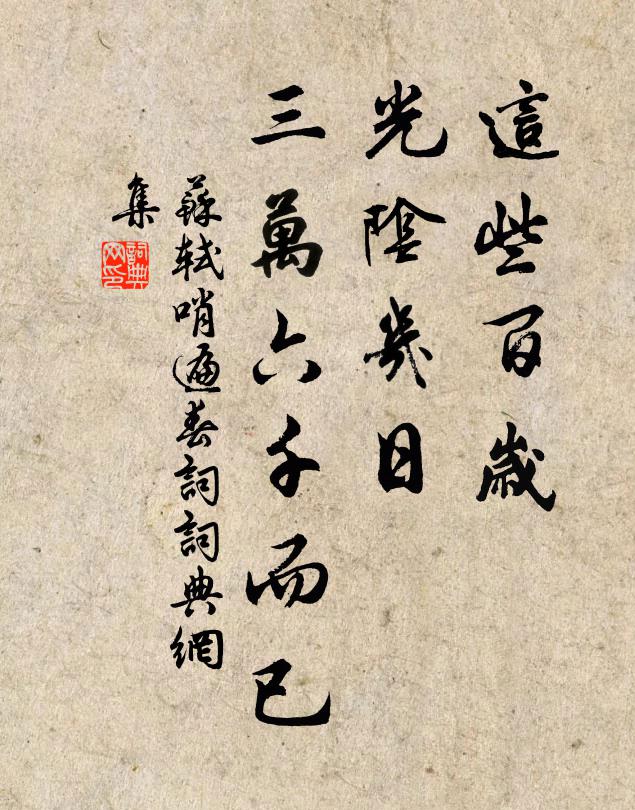 這些百歲
光陰幾日
三萬六千而已
蘇軾哨遍春詞詞典網
集
詞典
网印